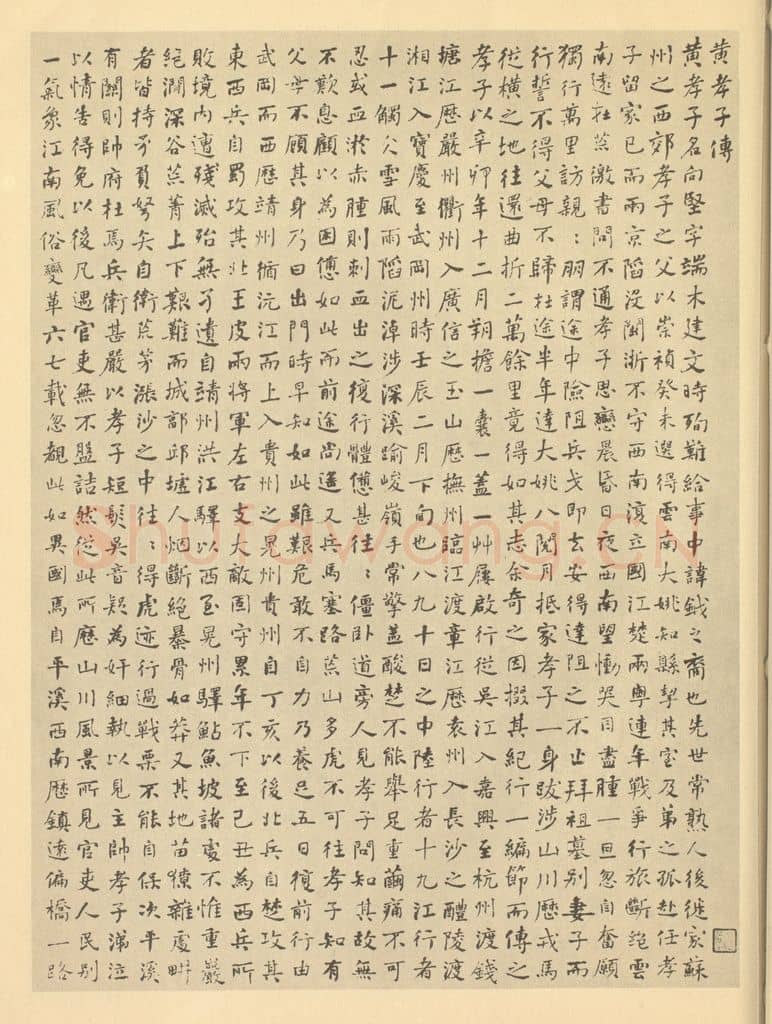 黄孝子傳
黄孝子名向堅字端木建文時殉難給事中諱鉞之裔也先世常熟人後徙家蘇
州之西郊孝子之父以崇禎癸未選得雲南大姚知縣挈其室及弟之孤赴任孝
子留家已而兩京陷没閩浙不守西南滇立國江楚兩粤連年戰爭行旅斷絶雲
南遠在荒徼書問不通孝子思戀晨昏日夜西南望慟哭目盡腫一旦忽自奮願
獨行萬里訪親:朋謂途中險阻兵戈即去安得達阻之不止拜祖墓别妻子而
行誓不得父母不歸在途半年達大姚八閱月抵家孝子一身跋涉山川歷戎馬
從横之地往還曲折二萬餘里竟得如其志余奇之因掇其紀行一編節而傳之
孝子以辛卯年十二月朔擔一囊一蓋一艸屨啟行從吴江入嘉興至杭州渡錢
塘江歷嚴州衢州入廣信之玉山歷撫州臨江渡章江歷袁州入長沙之醴陵渡
湘江入寶慶至武岡州時壬辰二月下旬也八九十日之中陸行者十九江行者
十一觸冫雪風雨蹈泥淖涉深溪踰峻嶺手常擎蓋酸楚不能舉足重繭痛不可
忍或血淤赤腫則刺血出之復行體憊甚往:僵卧道旁人見孝子問知其故無
不歎息顧以為困憊如此而前途尚遥又兵馬塞路荒山多虎不可往孝子知有
父母不顧其身乃曰出門時早知如此雖艱危敢不自力乃養足五日復前行由
武岡而西歷靖州循沅江而上入貴州之晃州貴州自丁亥以後北兵自楚攻其
東西兵自蜀攻其北王皮兩將軍左右支大敵固守累年不下至己丑為西兵所
敗境内遭殘滅殆無孑遺自靖州洪江驛以西至晃州驛鮎魚坡諸處不惟重嚴
絶澗深谷荒菁上下艱難而城郭邱墟人烟斷絶暴骨如莽又其地苗獠雜處畊
者皆持矛負弩矢自衛荒茅漲沙之中往:得虎迹行過戰栗不能自保次平溪
有關則帥府杜馬兵衛甚嚴以孝子短髮吴音疑為奸細執以見主帥孝子涕泣
以情告得免以後凡遇官吏無不盤詰然從此所歷山川風景所見官吏人民别
一氣象江南風俗變革六七載忽覩此如異國焉自平溪西南歷鎮遠偏橋一路